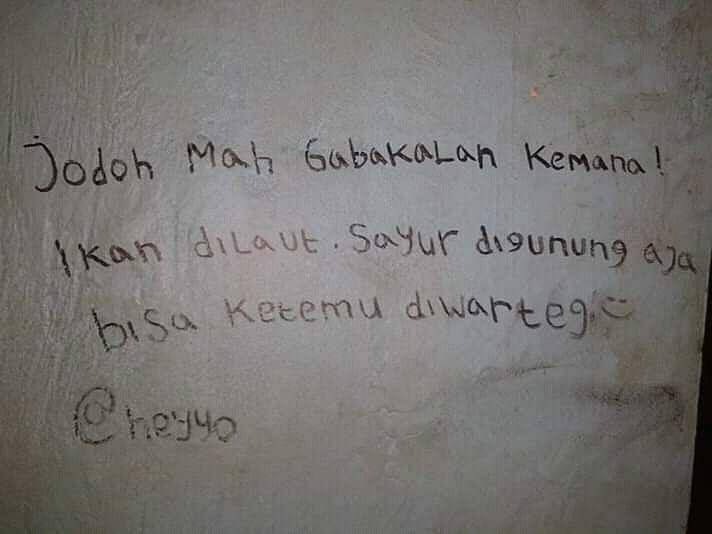 Jodoh Mah Gabakalan Kemana!
Ikan diLaut. Sayur digunung aja
bisa Ketemu diwarteg.
@heyyo